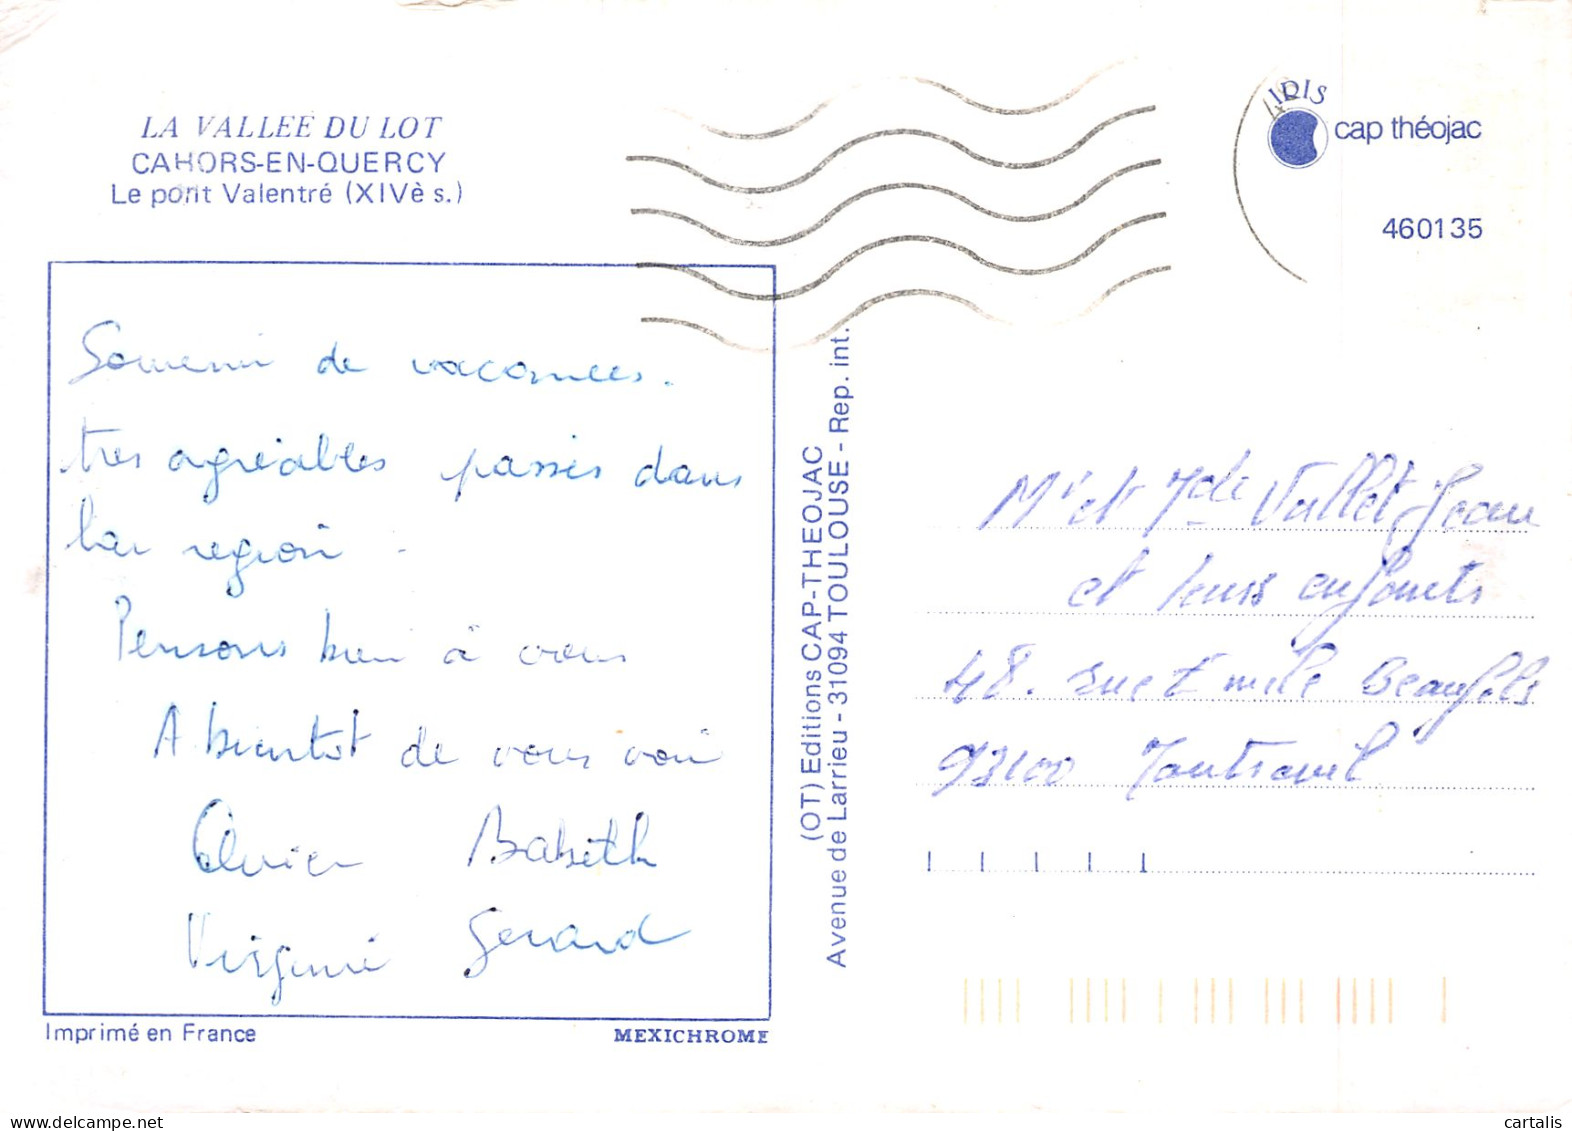 LA VALLEE DU LOT
CAHORS-EN-QUERCY
Le pont Valentré (XIVè s.)
IRIS
cap théojac
460135
Souvenir de vacances.
tres agréables passés dans
la region.
Pensons bien à vous
A bientot de vous voir
Olivier Babeth
Virginie Gerard
Imprimé en France
MEXICHROME
(OT) Editions CAP-THEOJAC
Avenue de Larrieu - 31094 TOULOUSE - Rep. int.
Mr et Mde Vallet Jean
et leurs enfants
48. rue Emile Beaufils
93100 Montreuil
cartalis